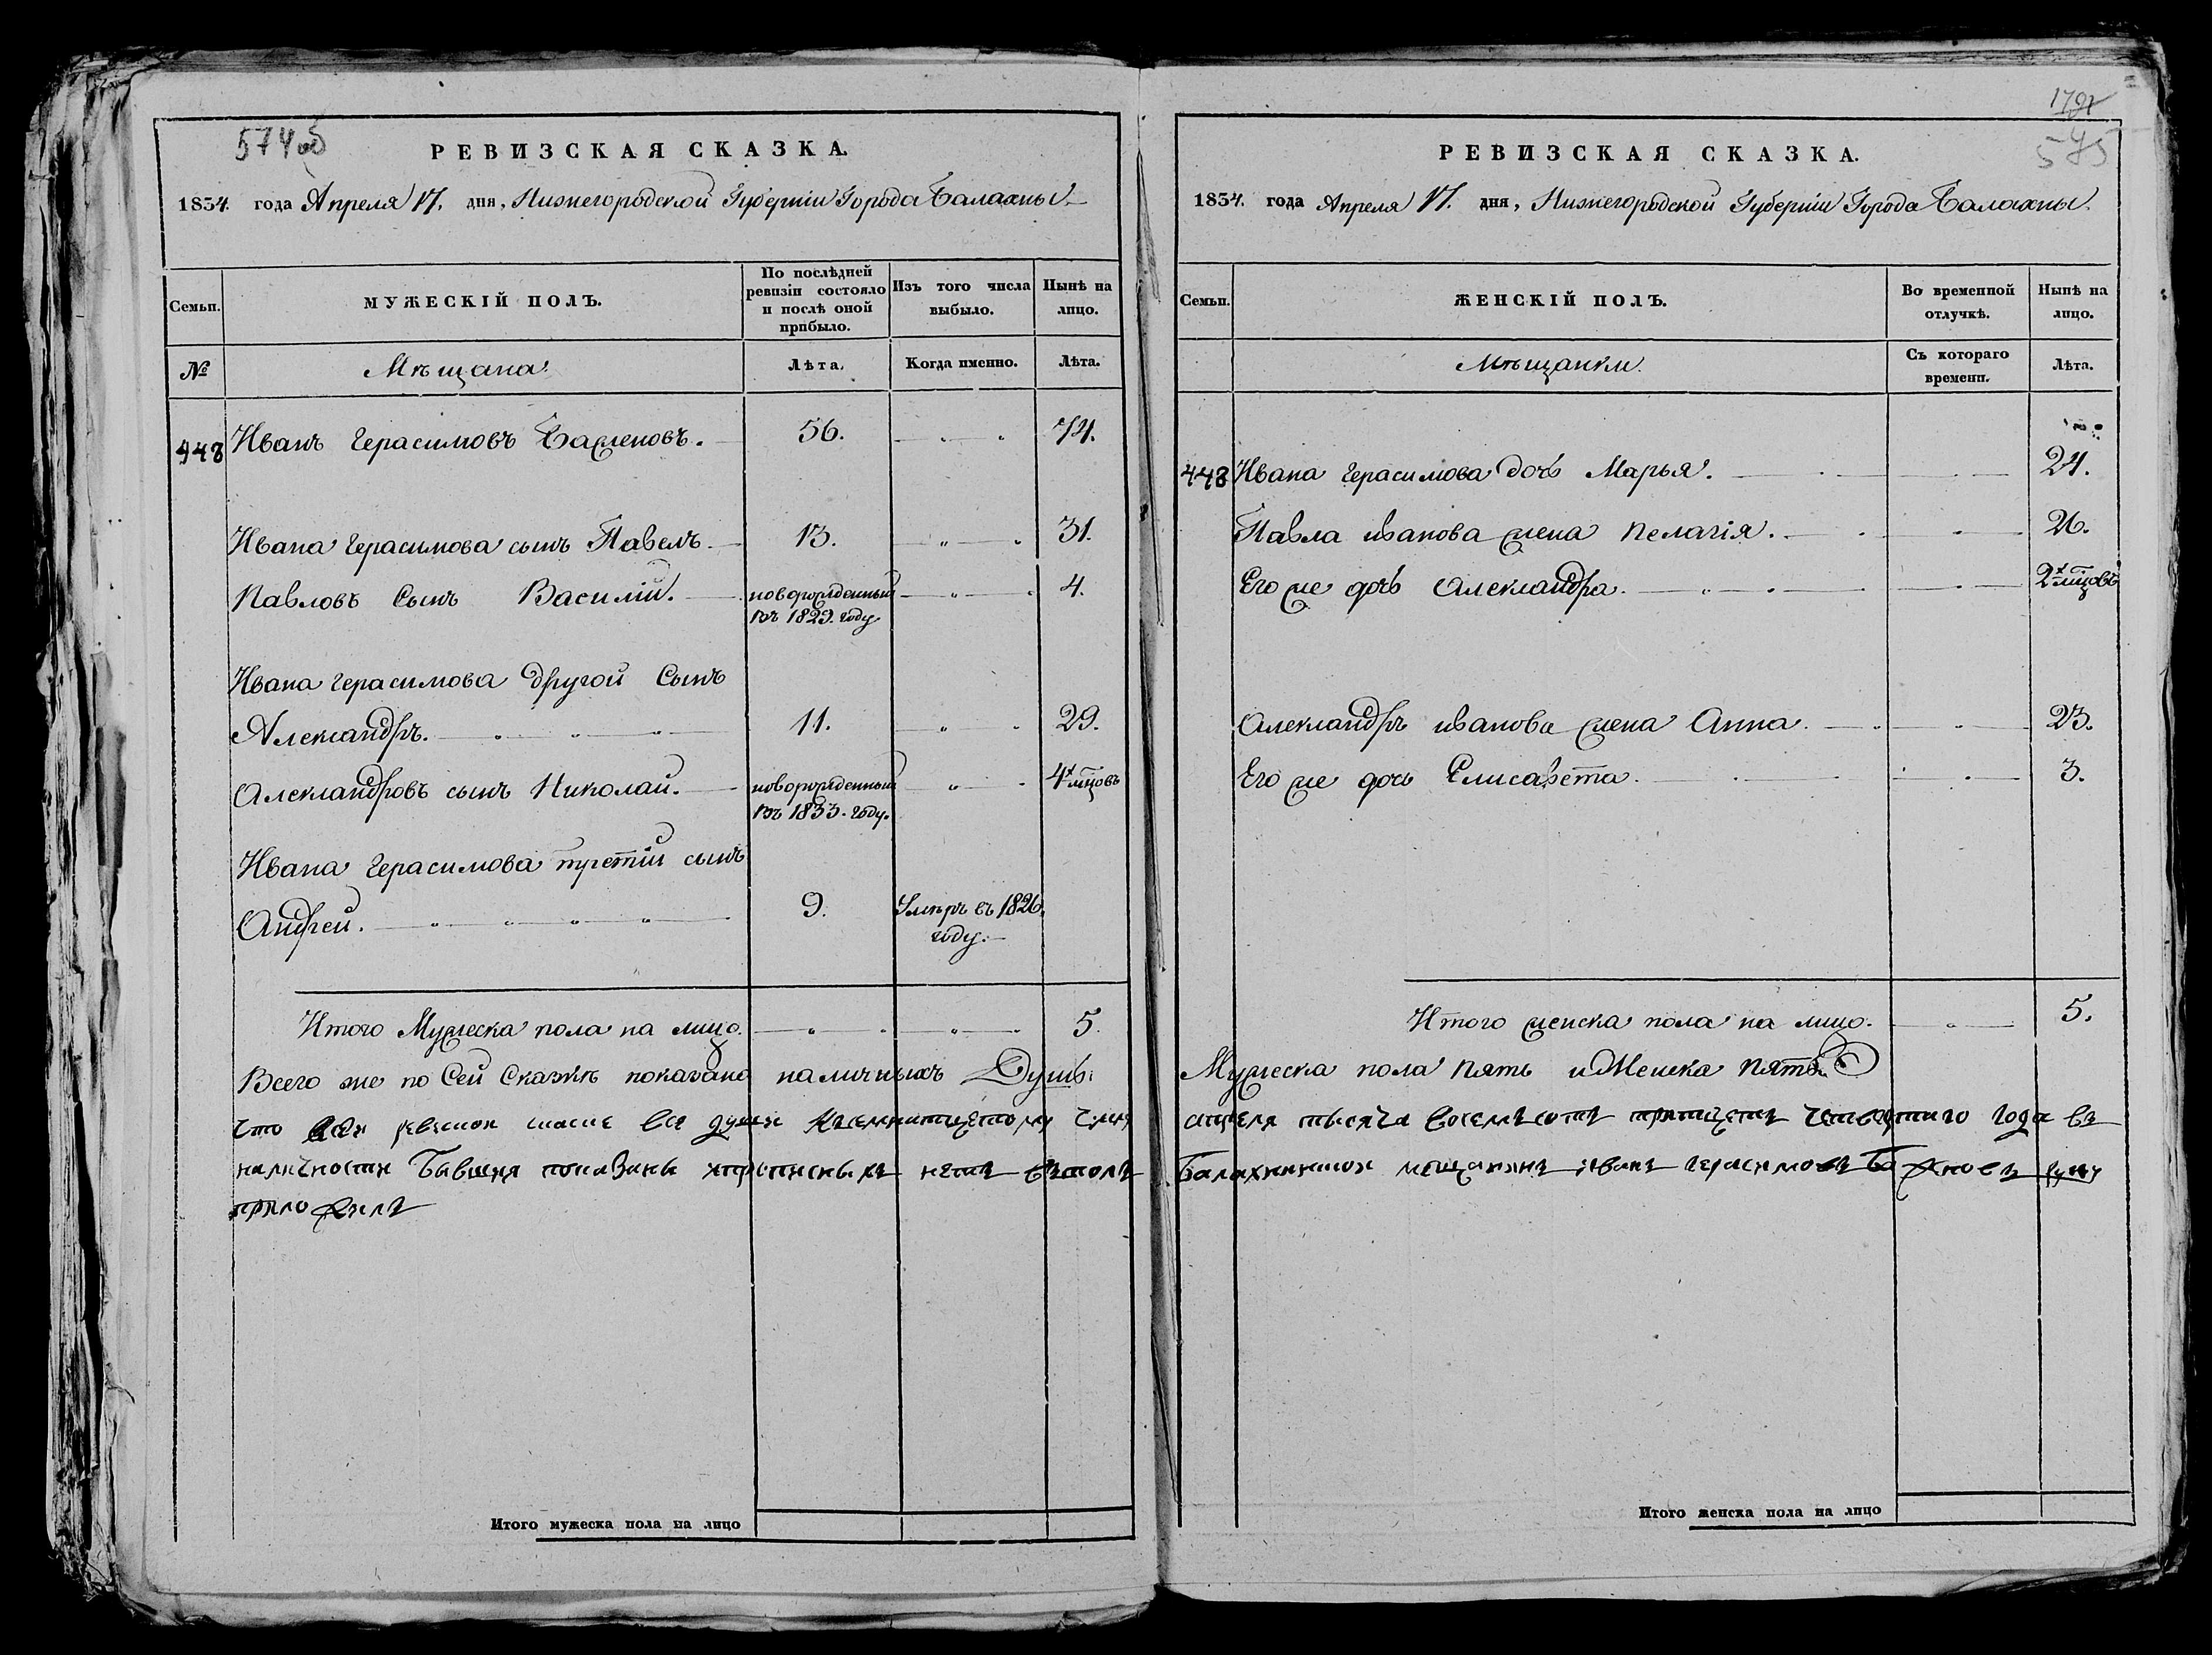 574об
РЕВИЗСКАЯ СКАЗКА.
1834. года Апреля 17. дня, Нижегородской Губерніи Города Балахны.
Семьи.
МУЖЕСКІЙ ПОЛЪ.
По послѣдней
ревизіи состояло
и послѣ оной
прибыло.
Изъ того числа
выбыло.
Нынѣ на
лицо.
№
Мѣщана
Лѣта.
Когда именно.
Лѣта.
448 Иванъ Герасимовъ Баженовъ. 56. 74.
Ивана Герасимова сынъ Павелъ. 13. 31.
Павловъ Сынъ Василій. новорожденный 4.
въ 1829. году
Ивана Герасимова другой Сынъ
Александръ. 11. 29.
Александровъ сынъ Николай. новорожденный 4х мцовъ
въ 1833. году.
Ивана Герасимова третій сынъ
Андрей. 9. Умѣръ въ 1826.
году.
Итого Мужеска пола на лицо. 5.
Всего же по Сей Сказкѣ показано наличныхъ Душъ:
что ревизии все души
наличности Бывшия показаны нетъ
приложилъ
Итого мужеска пола на лицо
1791
575
РЕВИЗСКАЯ СКАЗКА.
1834. года Апреля 17. дня, Нижегородской Губерніи Города Балахны.
Семьи.
ЖЕНСКІЙ ПОЛЪ.
Во временной
отлучкѣ.
Нынѣ на
лицо.
Мѣщанки.
Съ котораго
времени.
Лѣта.
448 Ивана Герасимова дочь Марья. 24.
Павла иванова жена пелагія. 26.
Его же дочь Александра. 2х мцовъ
Александръ иванова жена Анна. 23.
Его же дочь Елисавета. 3.
Итого женска пола на лицо. 5.
Мужеска пола пять и Женска пять
апреля тысяча восемьсотъ тритцеть четвертаго года въ
Балахнинской мещанинъ иванъ герасимовъ Бажновъ руку
Итого женска пола на лицо